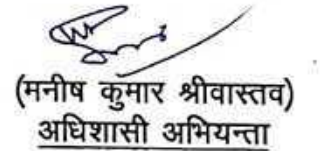 (मनीष कुमार श्रीवास्तव)
अधिशासी अभियन्ता